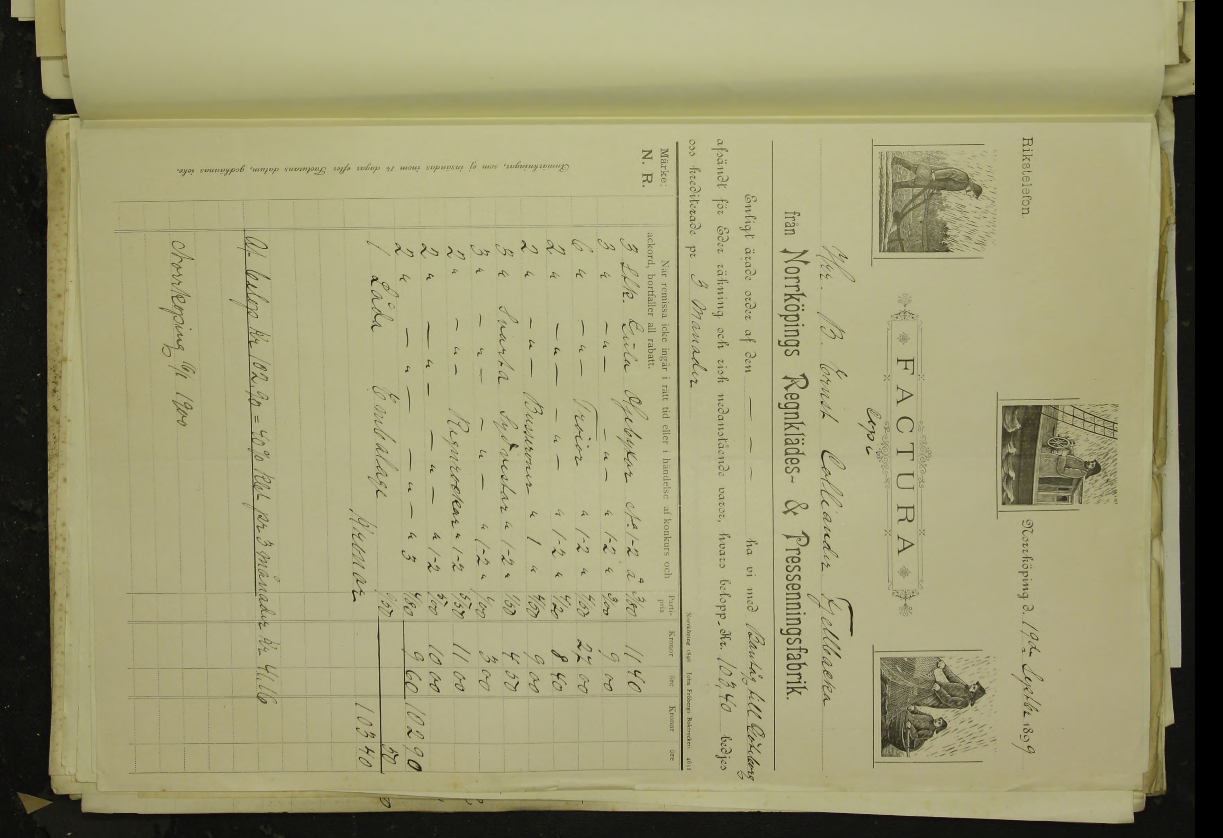 Rikstelefon.
Norrköping d. 19de Septbr 1899
FACTURA
Copi
Hr. B. Ernst Colliander Fjellbacka
från Norrköpings Regnkläds- & Pressenningsfabrik.
Enligt ärade order af den — — — ha vi med Bantåg till Göteborg
afsändt för Eder räkning och risk nedanstående varor, hvars belopp Kr. 103,40 bedjes
oss krediterade pr 3 Månader
Norrköping 1898 Lithografiska
Märke: N. R.
När remissa icke ingår i rätt tid eller i händelse af konkurs och ackord, bortfaller all rabatt.
Parti-pris Kronor öre Kronor öre
3 Stk. Gula Byxor No 1-2 à 3/80 11 40
3 " — " — " — " 1-2 " 3/00 9 00
6 " — " — Tröior " 1-2 " 4/50 27 00
2 " — " — " — " 1-2 " 4/20 8 40
2 " — " — Busseroner " 1 " 4/50 9 00
3 " Svarta Sydvestar " 1-2 " 1/50 4 50
3 " — " — " — " 1-2 " 1/00 3 00
2 " — " — Regnrockar " 1-2 5/50 11 00
2 " — " — " — " 1-2 5/00 10 00
2 " — " — " — " 3 4/80 9 60 102 90
1 Låda Emballage /50 50
Kronor 103 40
Af belopp Kr 102,90 = 40% Rbt pr 3 månader Kr 41.16
Norrköping 1900
Anmärkningar, som ej insändas inom 14 dagar efter Facturans datum, godkännas icke.